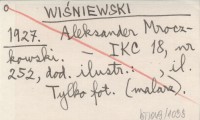 WIŚNIEWSKI
1927. Aleksander Mrocz-
kowski. – IKC 18, nr
252, dod. ilustr.: , il.
Tylko fot. (malarz).